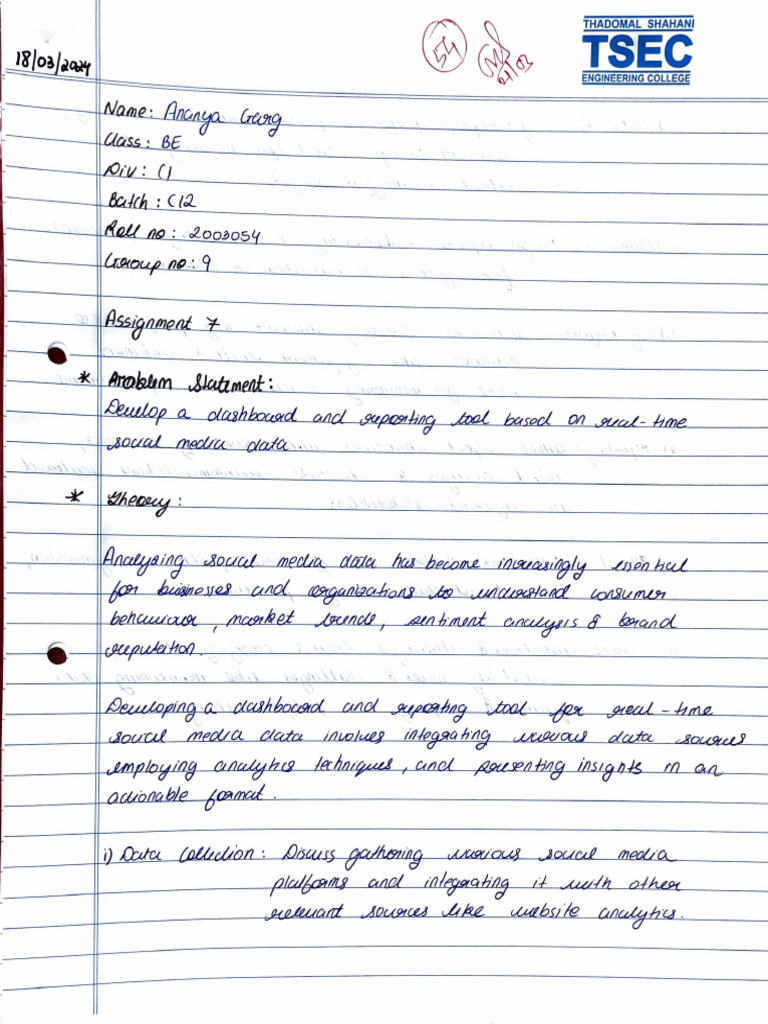 THADOMAL SHAHANI
TSEC
ENGINEERING COLLEGE
54
21/03
18/03/2024
Name: Ananya Garg
Class: BE
Div: C1
Batch: C12
Roll no: 2003054
Group no: 9
Assignment 7
* Problem Statement:
Develop a dashboard and reporting tool based on real-time
social media data.
* Theory:
Analyzing social media data has become increasingly essential
for businesses and organizations to understand consumer
behaviour, market trends, sentiment analysis & brand
reputation.
Developing a dashboard and reporting tool for real-time
social media data involves integrating various data sources
employing analytics techniques, and presenting insights in an
actionable format.
i) Data Collection: Discuss gathering various social media
platforms and integrating it with other
relevant sources like website analytics.